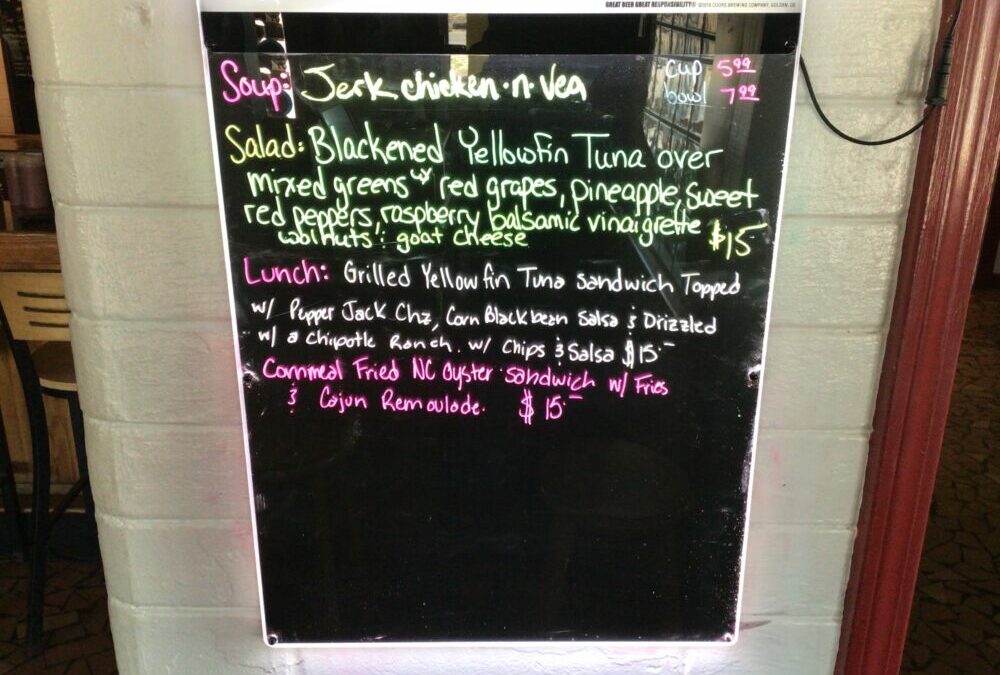 GREAT BEER GREAT RESPONSIBILITY® ©2016 COORS BREWING COMPANY, GOLDEN, CO
Soup: Jerk chicken·n·Veg cup 5.99
bowl 7.99
Salad: Blackened Yellowfin Tuna over
mixed greens w/ red grapes, pineapple, sweet
red peppers, raspberry balsamic vinaigrette $15
walnuts & goat cheese
Lunch: Grilled Yellowfin Tuna Sandwich Topped
w/ Pepper Jack Chz, Corn Blackbean Salsa & Drizzled
w/ a Chipotle Ranch. w/ Chips & Salsa $15.-
Cornmeal Fried NC Oyster sandwich w/ Fries
& Cajun Remoulade. $15.-